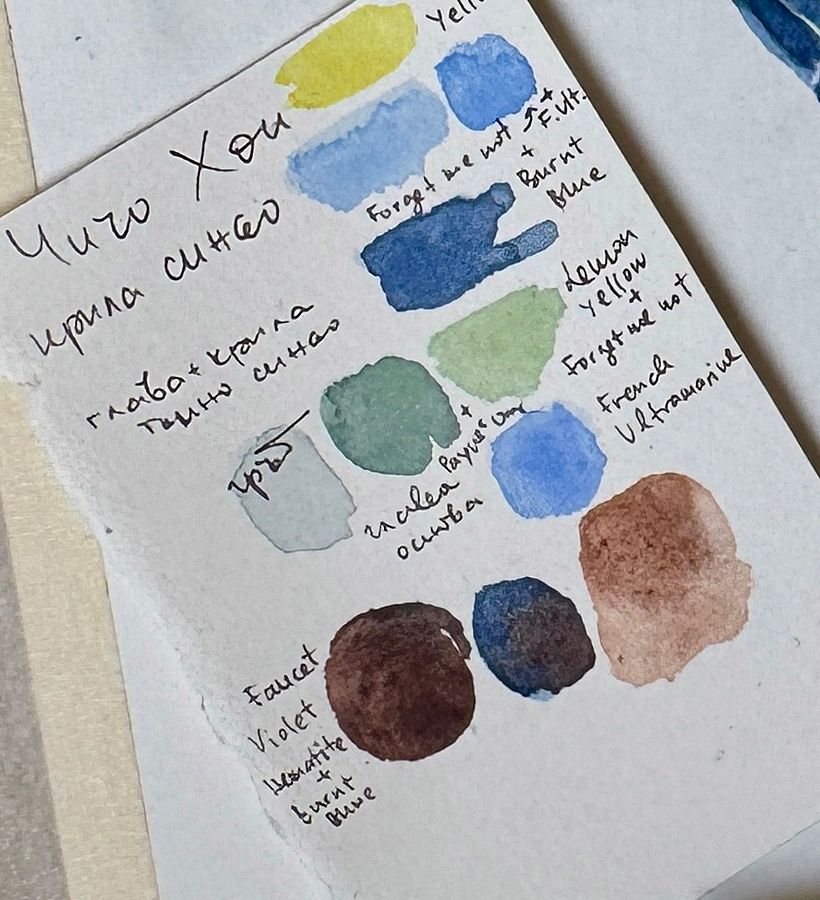 Чичо Хои
крила синьо
глава + крила
тъмно синьо
гръб
Forget me not + F. ult.
+
Burnt
Blue
Lemon
yellow
+
Forget me not
French
Ultramarine
+
основа
Faucet
Violet
Hematite
+
Burnt
Blue